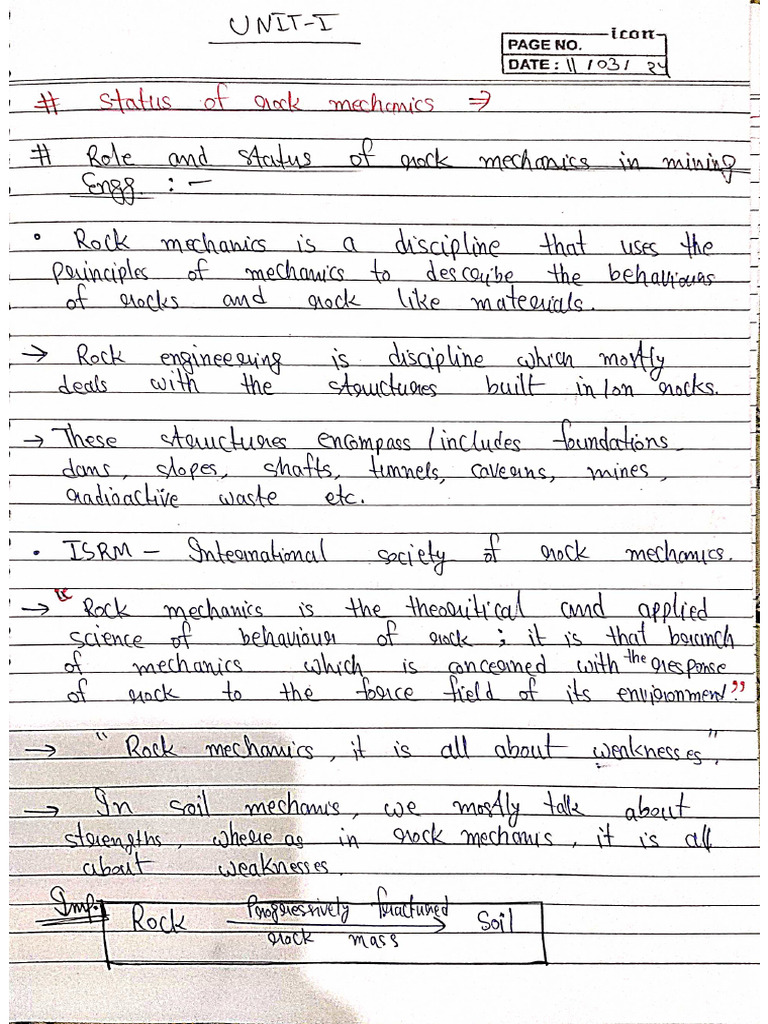 UNIT-I
icon
PAGE NO.
DATE: 11/03/24
# Status of rock mechanics ⇒
# Role and status of rock mechanics in mining
Engg. : -
• Rock mechanics is a discipline that uses the
principles of mechanics to describe the behaviours
of rocks and rock like materials.
→ Rock engineering is discipline which mostly
deals with the structures built in/on rocks.
→ These structures encompass/includes foundations,
dams, slopes, shafts, tunnels, caverns, mines,
radioactive waste etc.
• ISRM - International society of rock mechanics.
→ "Rock mechanics is the theoritical and applied
science of behaviour of rock; it is that branch
of mechanics which is concerned with the response
of rock to the force field of its environment."
→ "Rock mechanics, it is all about weaknesses".
→ In soil mechanis, we mostly talk about
strengths, where as in rock mechanis, it is all
about weaknesses.
Imp. Rock Progressively fractured Soil
rock mass